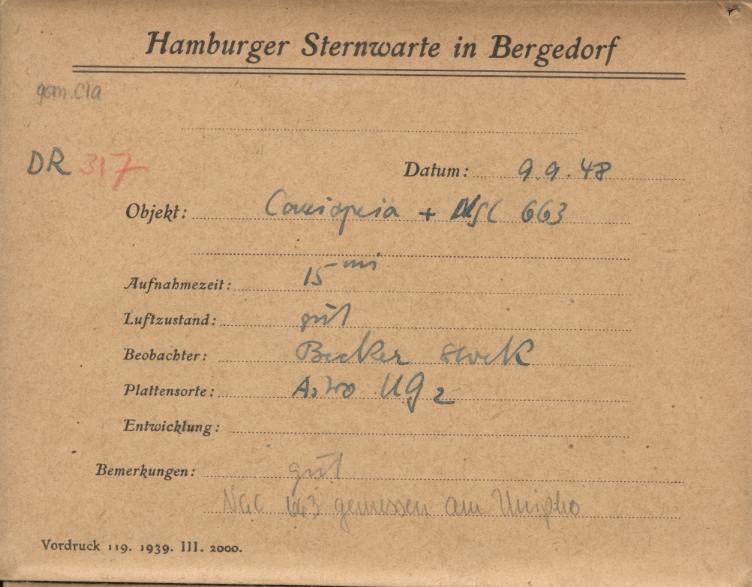 Hamburger Sternwarte in Bergedorf
gem. Cla
DR 317
Datum: 9.9.48
Objekt: Cassiopeia + NGC 663
Aufnahmezeit: 15 min
Luftzustand: gut
Beobachter: Becker Stock
Plattensorte: Astro UG2
Entwicklung:
Bemerkungen: gut
NGC 663 gemessen am Unipho
Vordruck 119. 1939. III. 2000.